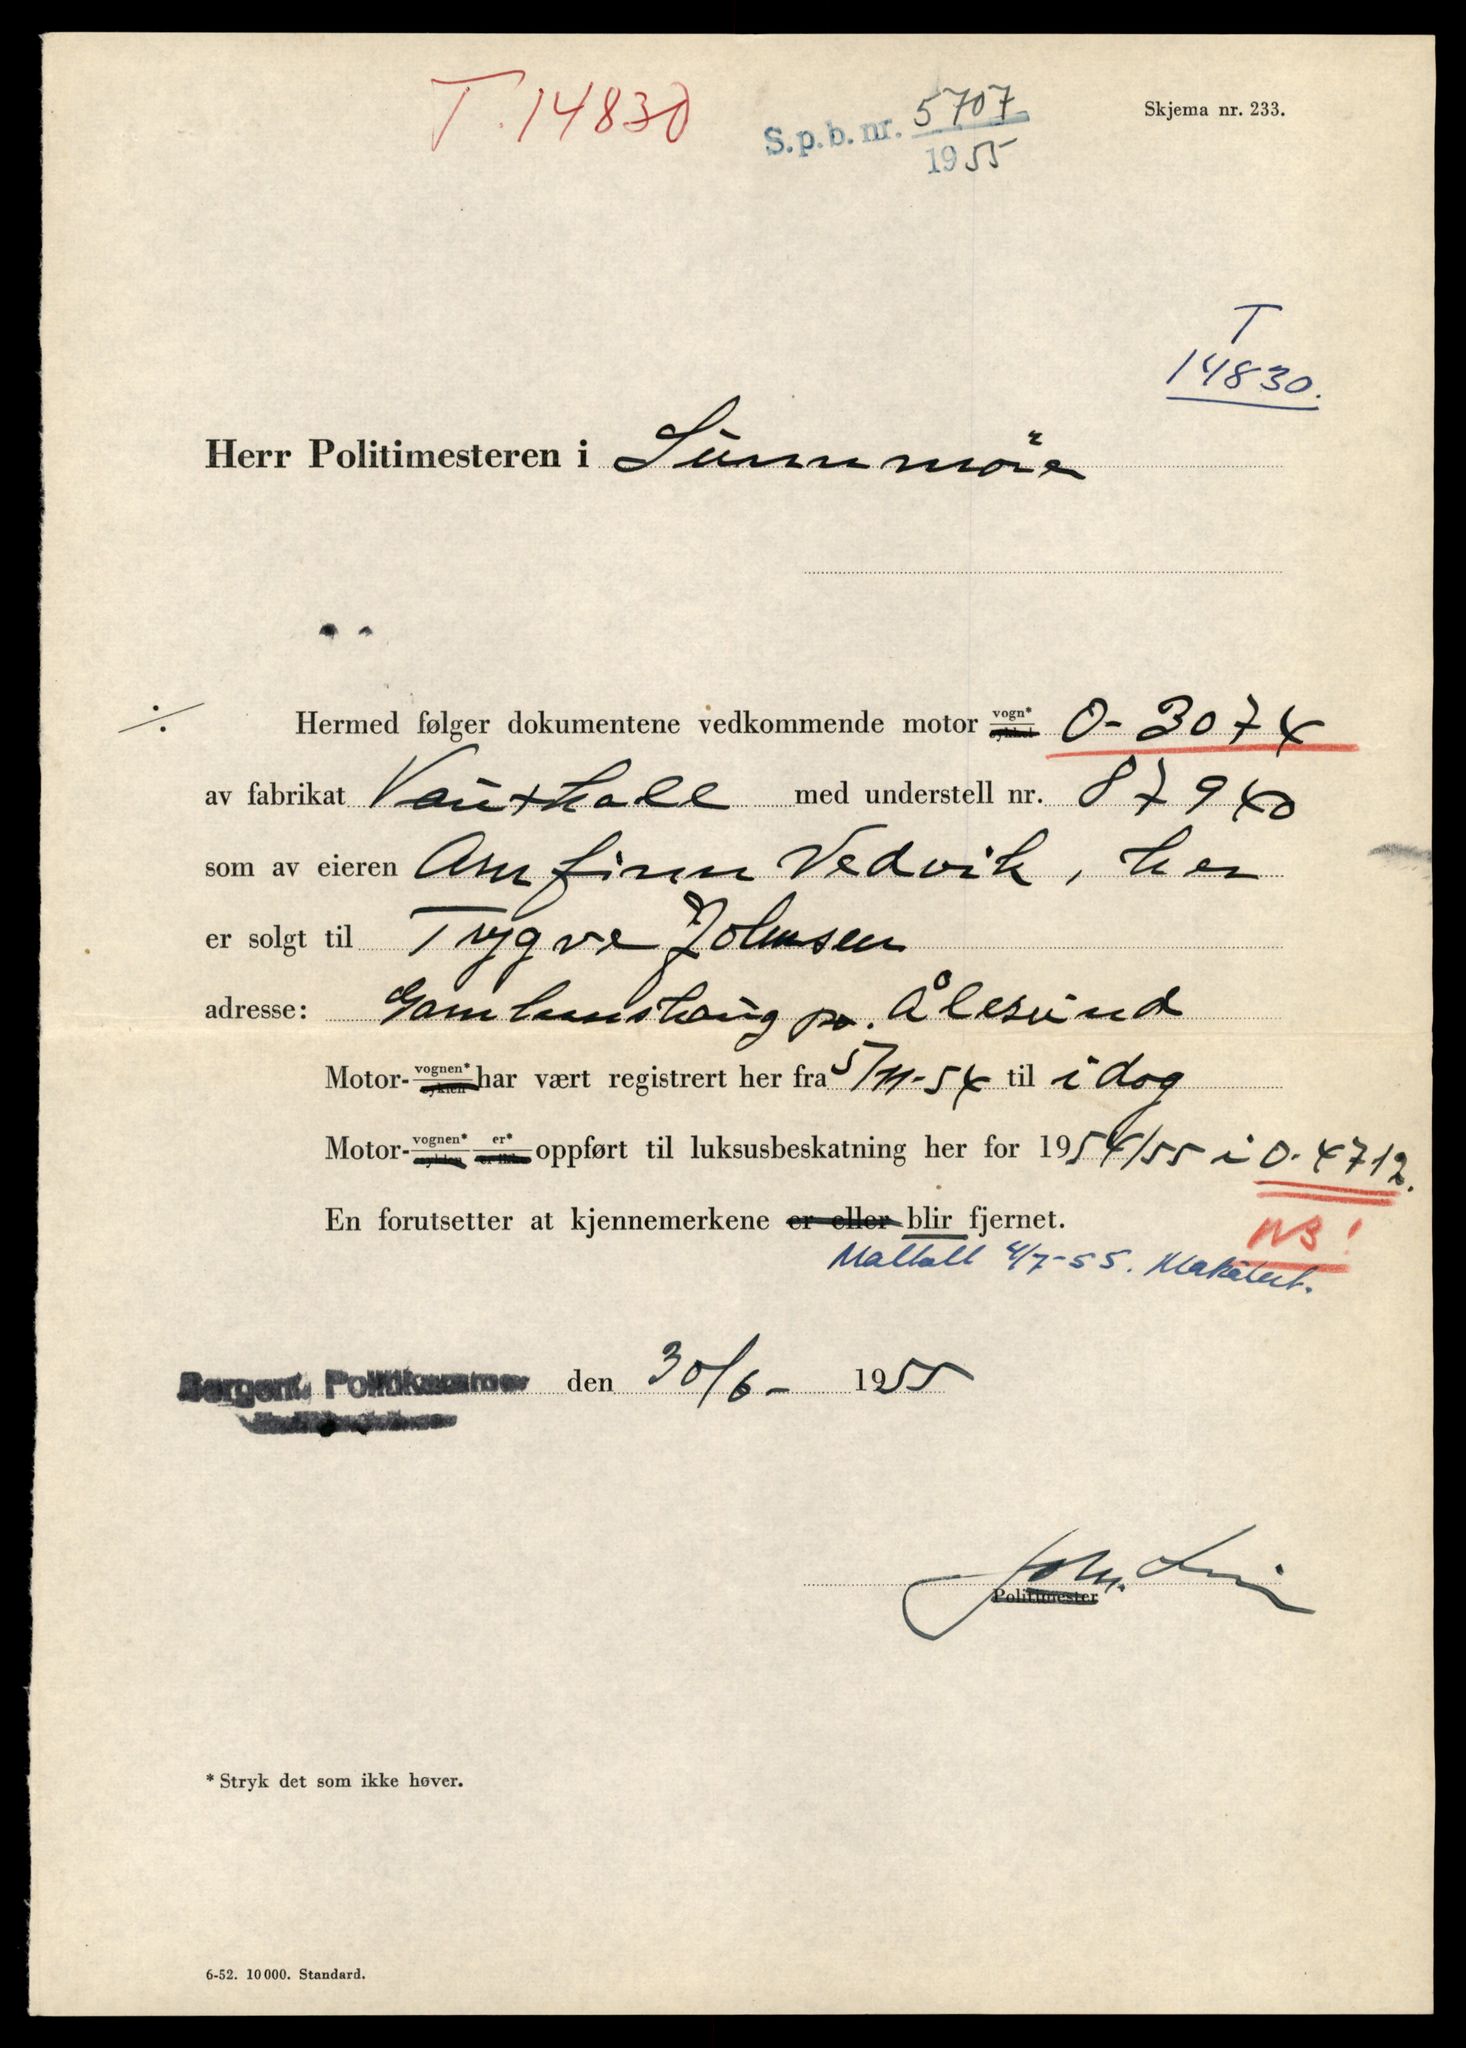 T. 14830
S.p.b. nr. 5707
1955
Skjema nr. 233.
T
14830.
Herr Politimesteren i Sunnmöre
÷ Hermed følger dokumentene vedkommende motor vogn* sykkel O-3074
av fabrikat Vauxhall med understell nr. 87940
som av eieren Arnfinn Vedvik, her
er solgt til Trygve Johnsen
adresse: Gamlemshaug pr. Ålesund
Motor- vognen* syklen har vært registrert her fra 5/11-54 til idag
Motor- vognen* syklen er* er ikke oppført til luksusbeskatning her for 1954/55 i O-4712.
En forutsetter at kjennemerkene er eller blir fjernet.
NB!
Mottatt 4/7-55.
Bergens Politikammer den 30/6- 1955
Politimester
* Stryk det som ikke høver.
6-52. 10 000. Standard.